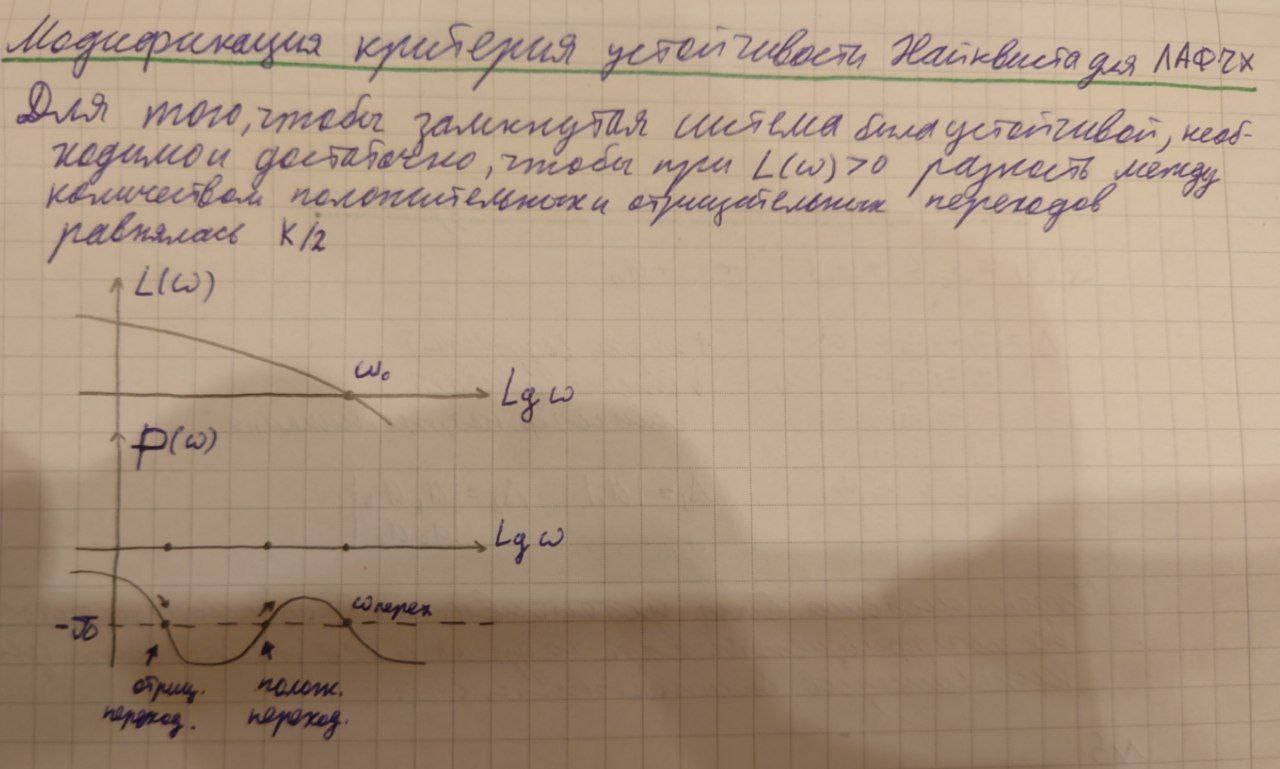 Модификация критерия устойчивости Найквиста для ЛАФЧХ
Для того, чтобы замкнутая система была устойчивой, необ-
ходимо и достаточно, чтобы при L(ω)>0 разность между
количеством положительных и отрицательных переходов
равнялась K/2
L(ω)
ω₀
Lg ω
φ(ω)
Lg ω
-π
ωперех
отриц. полож.
переход. переход.